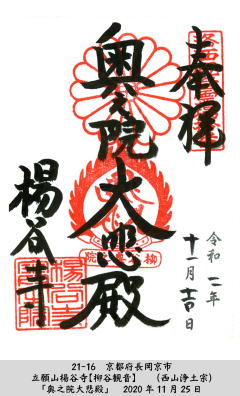 奉拝
奥之院大悲殿
楊谷寺
令和二年
十一月吉日
21-16　京都府長岡京市
立願山楊谷寺【柳谷観音】　（西山浄土宗）
「奥之院大悲殿」　2020年11月25日